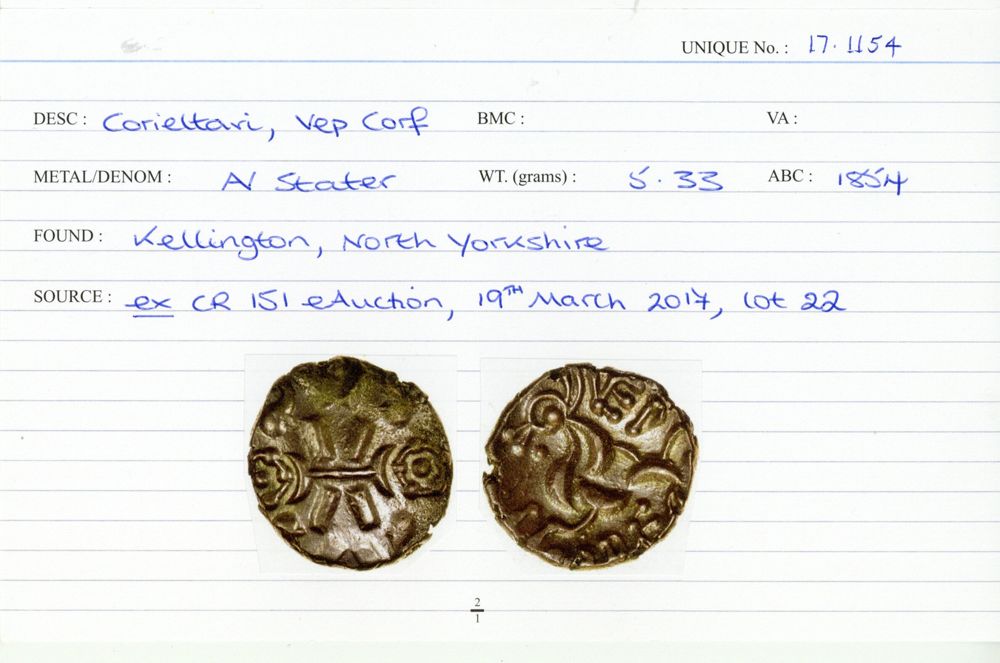 UNIQUE No. : 17.1154
DESC : Corieltavi, Vep Corf BMC : VA :
METAL/DENOM : AV Stater WT. (grams) : 5.33 ABC : 1854
FOUND : Kellington, North Yorkshire
SOURCE : ex CR 151 eAuction, 19TH March 2017, lot 22
2
1